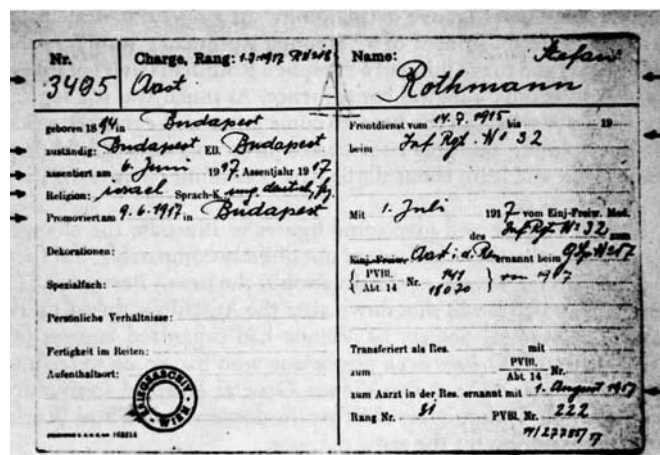 Nr.
3495
Charge, Rang: 1.3.1917
Aarzt
geboren 1894 in Budapest
zuständig: Budapest EB. Budapest
assentiert am 6. Juni 1917, Assentjahr 1917
Religion: israel Sprach-K. ung. deutsch, fr.
Promoviert am 9. 6. 1917 in Budapest
Dekorationen:
Spezialfach:
Persönliche Verhältnisse:
Fertigkeit im Reiten:
Aufenthaltsort:
KRIEGSARCHIV WIEN
Name: Stefan
Rothmann
Frontdienst vom 14. 7. 1915 bis 19
beim Inf Rgt. No 32
Mit 1. Juli 1917 vom Einj-Freiw. Med.
des Inf Rgt. No 32 zum
Einj-Freiw. Aarzt i. d. Res ernannt beim
{ PVBl. Abt. 14 } Nr. von 1917
Transferiert als Res. mit
zum PVBl. Abt. 14 Nr.
zum Aarzt in der Res. ernannt mit 1. August 1917
Rang Nr. 81 PVBl. Nr. 222